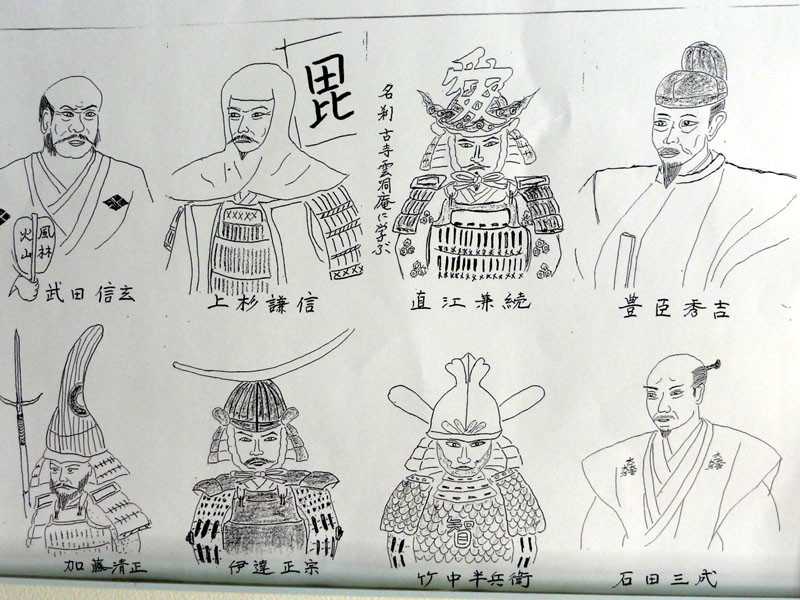 毘
愛
名刹古寺雲洞庵に学ぶ
風林
火山
武田信玄
上杉謙信
直江兼続
豊臣秀吉
智
加藤清正
伊達正宗
竹中半兵衛
石田三成